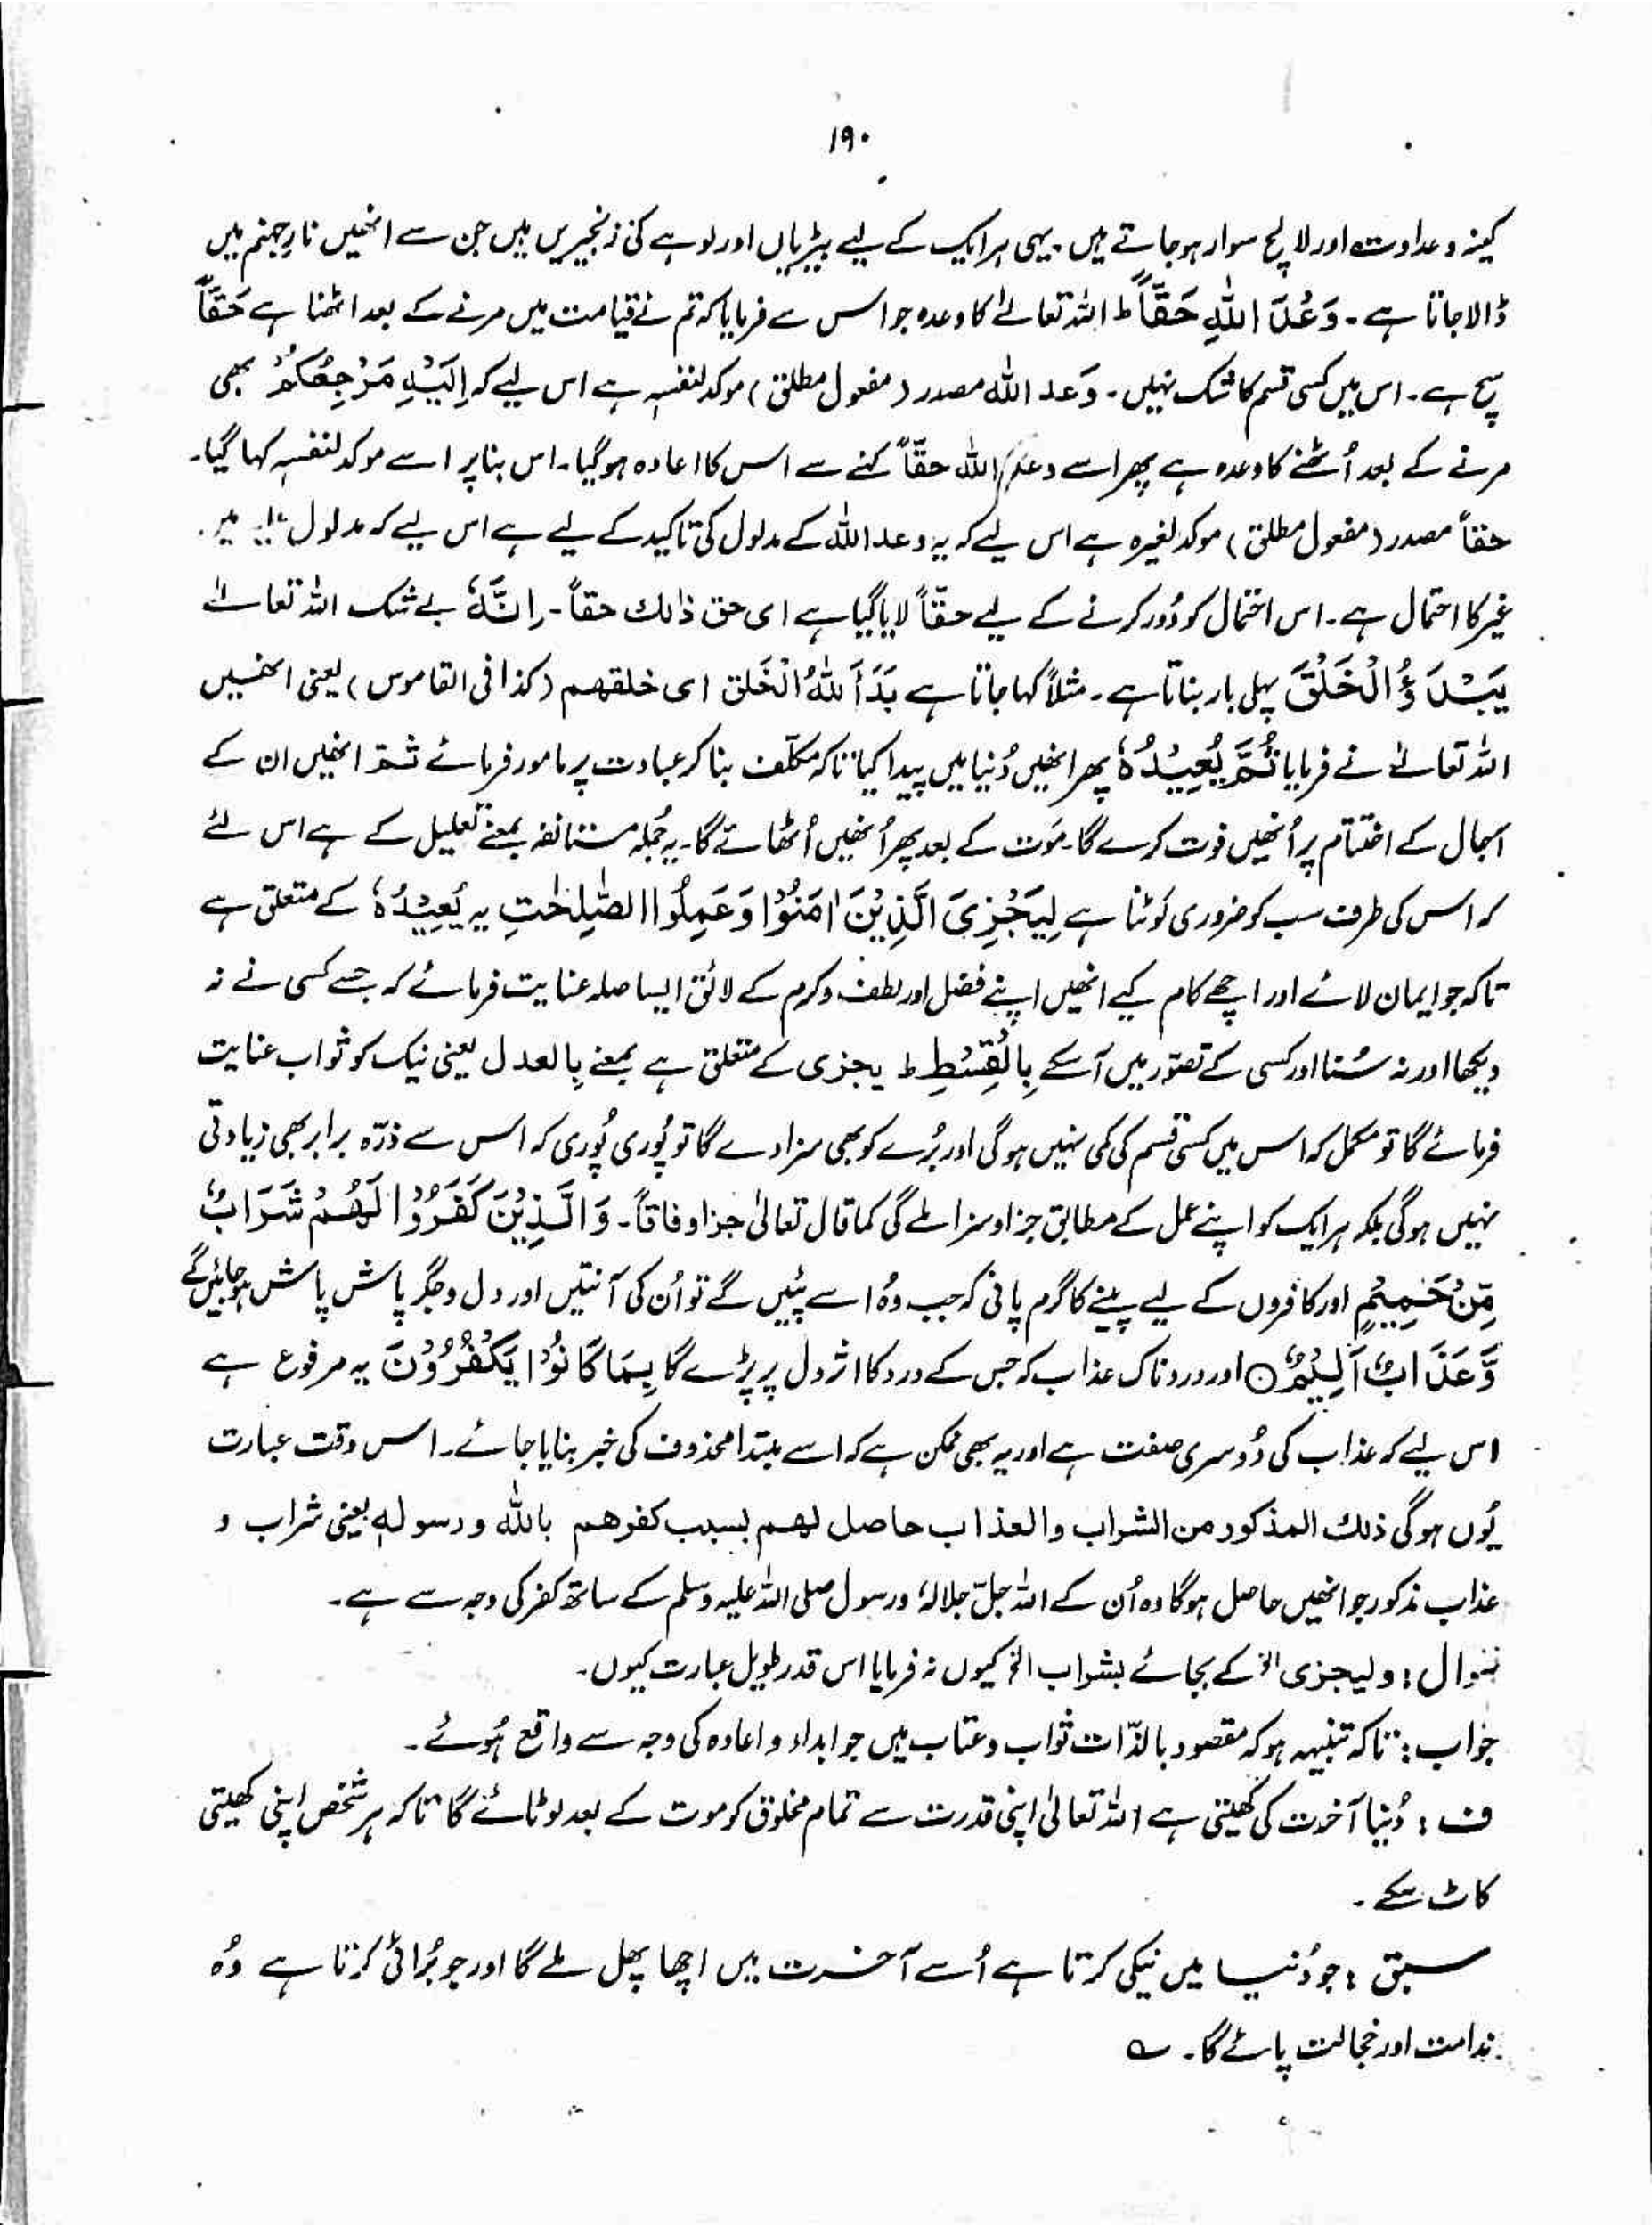 ۱۹۰
کینہ و عداوت اور لالچ سوار ہو جاتے ہیں۔ یہی ہر ایک کے لیے بیڑیاں اور لوہے کی زنجیریں ہیں جن سے انھیں نارِ جہنم میں
ڈالا جاتا ہے۔ وَعْدَ اللّٰہِ حَقًّا ط اللہ تعالےٰ کا وعدہ جو اس سے فرمایا کہ تم نے قیامت میں مرنے کے بعد اٹھنا ہے حَقًّا
سچ ہے۔ اس میں کسی قسم کا شک نہیں۔ وَعد اللّٰہ مصدر (مفعول مطلق) موکد لنفسہٖ ہے اس لیے کہ اِلَیْہِ مَرْجِعُکُمْ بھی
مرنے کے بعد اُٹھنے کا وعدہ ہے پھر اسے وعد اللّٰہ حقّاً کہنے سے اس کا اعادہ ہو گیا۔ اس بنا پر اسے موکد لنفسہٖ کہا گیا۔
حقاً مصدر (مفعول مطلق) موکد لغیرہ ہے اس لیے کہ یہ وعد اللّٰہ کے مدلول کی تاکید کے لیے ہے اس لیے کہ مدلول میں
غیر کا احتمال ہے۔ اس احتمال کو دُور کرنے کے لیے حقّاً لایا گیا ہے ای حق ذالک حقاً۔ اِنَّہٗ بے شک اللہ تعالےٰ
یَبْدَؤُا الْخَلْقَ پہلی بار بناتا ہے۔ مثلاً کہا جاتا ہے بَدَأَ اللّٰہُ الْخَلق ای خلقھم (کذا فی القاموس) یعنی انھیں
اللہ تعالےٰ نے فرمایا ثُمَّ یُعِیْدُہٗ پھر انھیں دُنیا میں پیدا کیا تاکہ مکلّف بنا کر عبادت پر مامور فرمائے ثم انھیں ان کے
آجال کے اختتام پر اُنھیں فوت کرے گا۔ مَوت کے بعد پھر اُنھیں اُٹھائے گا۔ یہ جُملہ مستانفہ بمعنے تعلیل کے ہے اس لئے
کہ اس کی طرف سب کو ضروری لَوٹنا ہے لِیَجْزِیَ الَّذِیْنَ اٰمَنُوْا وَعَمِلُوا الصّٰلِحٰتِ یہ یُعِیْدُہٗ کے متعلق ہے
تاکہ جو ایمان لائے اور اچھے کام کیے انھیں اپنے فضل اور لطف و کرم کے لائق ایسا صلہ عنایت فرمائے کہ جسے کسی نے نہ
دیکھا اور نہ سُنا اور کسی کے تصوّر میں آ سکے بِالْقِسْطِ ط یجزی کے متعلق ہے بمعنے بِالعدل یعنی نیک کو ثواب عنایت
فرمائے گا تو مکمل کہ اس میں کسی قسم کی کمی نہیں ہو گی اور بُرے کو بھی سزا دے گا تو پُوری پُوری کہ اس سے ذرّہ برابر بھی زیادتی
نہیں ہو گی بلکہ ہر ایک کو اپنے عمل کے مطابق جزا و سزا ملے گی کما قال تعالیٰ جزا و فاقاً۔ وَالَّذِیْنَ کَفَرُوْا لَھُمْ شَرَابٌ
مِّنْ حَمِیْمٍ اور کافروں کے لیے پینے کا گرم پانی کہ جب وُہ اسے پئیں گے تو اُن کی آنتیں اور دل و جگر پاش پاش ہو جائیں گے
وَّعَذَابٌ اَلِیْمٌ ○ اور دردناک عذاب کہ جس کے درد کا اثر دل پر پڑے گا بِمَا کَانُوْا یَکْفُرُوْنَ یہ مرفوع ہے
اس لیے کہ عذاب کی دُوسری صفت ہے اور یہ بھی ممکن ہے کہ اسے مبتدا محذوف کی خبر بنایا جائے۔ اس وقت عبارت
یُوں ہو گی ذلك المذکور من الشراب والعذاب حاصل لھم بسبب کفرھم باللّٰہ و رسولہٖ یعنی شراب و
عذاب مذکور جو انھیں حاصل ہو گا وہ اُن کے اللہ جلّ جلالہٗ و رسول صلی اللہ علیہ وسلم کے ساتھ کفر کی وجہ سے ہے۔
سوال: ولیجزی الخ کے بجائے بشراب الخ کیوں نہ فرمایا اس قدر طویل عبارت کیوں۔
جواب: تاکہ تنبیہہ ہو کہ مقصود بالذّات ثواب و عتاب ہیں جو ابداء و اعادہ کی وجہ سے واقع ہُوئے۔
ف: دُنیا آخرت کی کھیتی ہے اللہ تعالیٰ اپنی قدرت سے تمام مخلوق کو موت کے بعد لوٹائے گا تاکہ ہر شخص اپنی کھیتی
کاٹ سکے۔
سبق: جو دُنیا میں نیکی کرتا ہے اُسے آخرت میں اچھا پھل ملے گا اور جو بُرائی کرتا ہے وُہ
ندامت اور خجالت پائے گا۔ ے